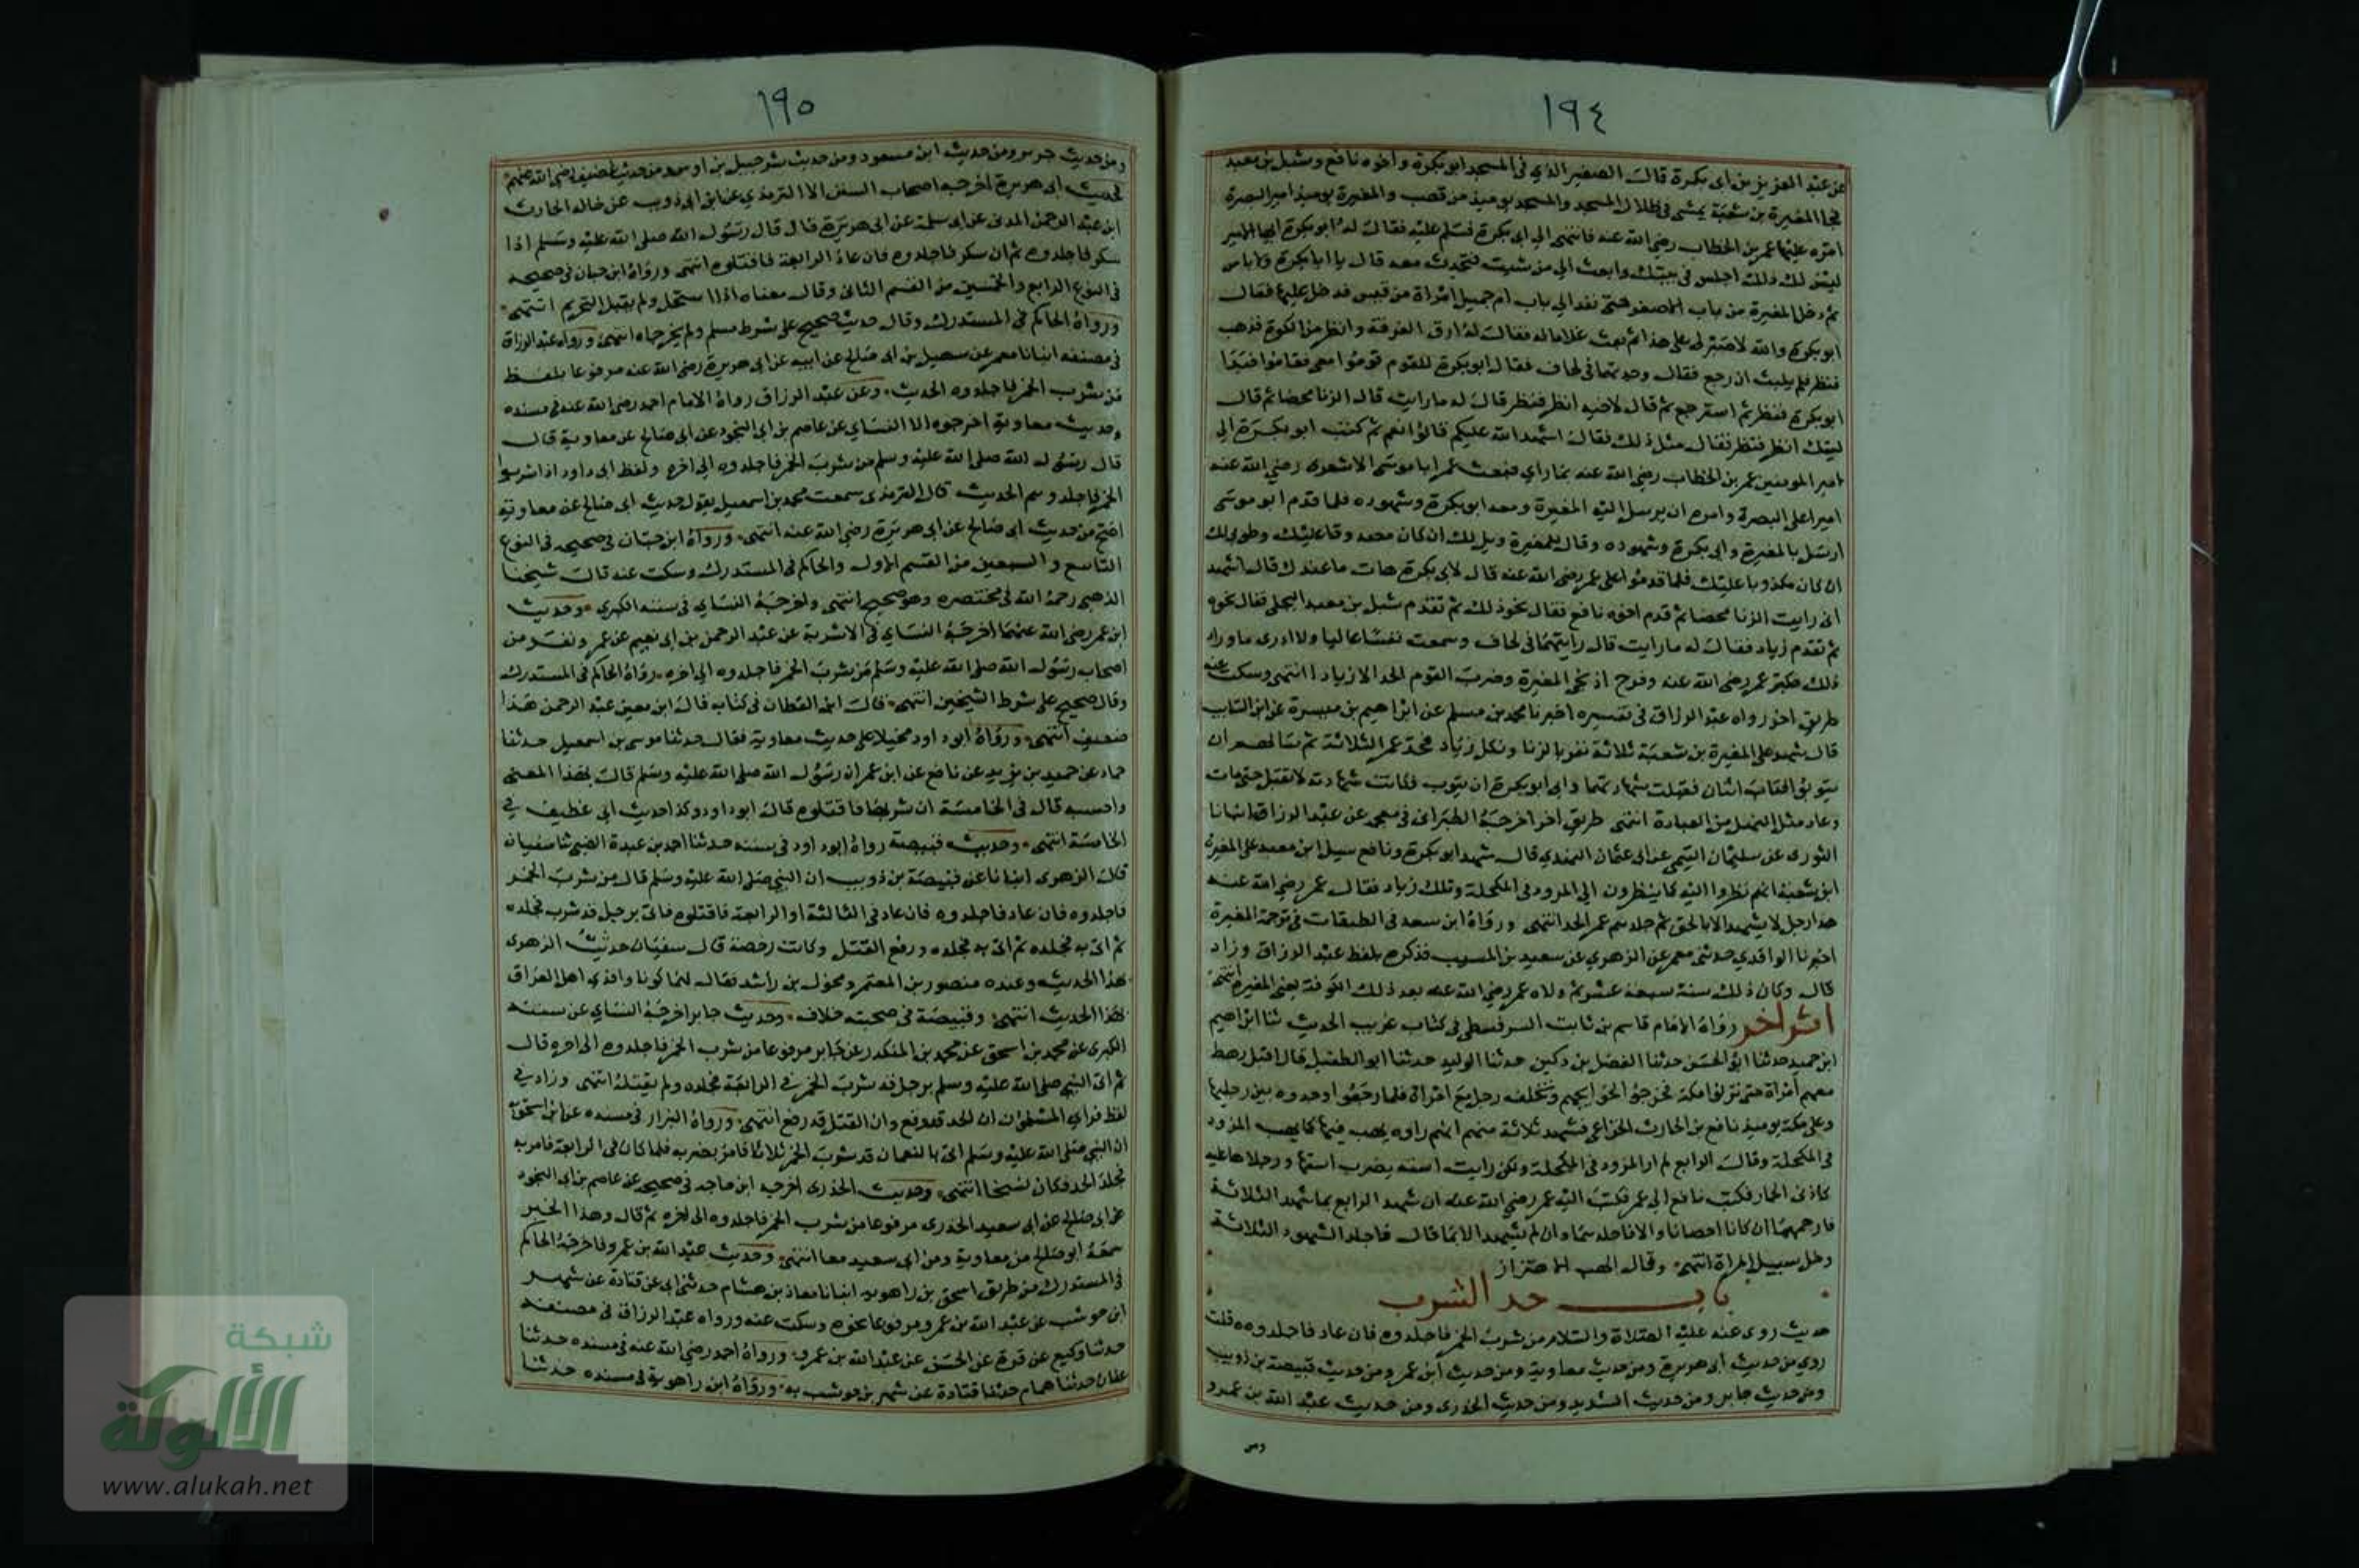 ١٩٤
عن عبد العزيز بن ابى بكرة قال الصفير الذي في المسجد ابو بكرة واخوه نافع وشبل بن معبد
فجا المغيرة بن شعبة يمشى في ظلال المسجد والمسجد يوميذ من قصب والمغيرة يوميذ امير البصرة
امره عليها عمر بن الخطاب رضي الله عنه فانتهى الي ابى بكرة فسلم عليه فقال له ابو بكرة ايها الامير
ليس لك ذلك اجلس في بيتك وابعث الي من شيت فتحدث معه قال يا ابا بكرة لا باس
ثم دخل المغيرة من باب الاصغر حتى نفد الي باب ام جميل امراة من قيس فدخل عليها فقال
ابو بكرة والله لا صبر لى على هذا ثم بعث غلاما له فقال له ارق الغرفة وانظر من الكوة فذهب
فنظر فلم يلبث ان رجع فقال وجدتهما في لحاف فقال ابو بكرة للقوم قوموا معي فقاموا فبدا
ابو بكرة فنظر ثم استرجع ثم قال لاخيه انظر فنظر قال له ما رايت قال الزنا محضا ثم قال
لشبل انظر فنظر فقال مثل ذلك فقال اشهد الله عليكم قالوا نعم ثم كتب ابو بكرة الي
امير المومنين عمر بن الخطاب رضي الله عنه بما راي فبعث عمر ابا موسى الاشعرى رضي الله عنه
اميرا على البصرة وامره ان يرسل اليه المغيرة ومعه ابو بكرة وشهوده فلما قدم ابو موسى
ارسل بالمغيرة وابى بكرة وشهوده وقال للمغيرة ويل لك ان كان مصدوقا عليك وطوبى لك
ان كان مكذوبا عليك فلما قدموا على عمر رضي الله عنه قال لابى بكرة هات ما عندك قال اشهد
انى رايت الزنا محضا ثم قدم اخوه نافع فقال نحو ذلك ثم تقدم شبل بن معبد البجلي فقال نحوه
ثم تقدم زياد فقال له ما رايت قال رايتهما فى لحاف وسمعت نفسا عاليا ولا ادرى ما وراء
ذلك فكبر عمر رضي الله عنه وفرح اذ نجى المغيرة وضرب القوم الحد الا زيادا انتهى وسكت عنه
طريق اخر رواه عبد الرزاق فى تفسيره اخبرنا محمد بن مسلم عن ابراهيم بن ميسرة عن ابن المسيب
قال شهد على المغيرة بن شعبة ثلاثة نفر بالزنا ونكل زياد فحد عمر الثلاثة ثم سالهم ان
يتوبوا فتاب اثنان فقبلت شهادتهما وابى ابو بكرة ان يتوب فكانت شهادته لا تقبل حتى مات
وعاد مثل النصل من العبادة انتهى طريق اخر اخرجه الطبرانى فى معجمه عن عبد الرزاق انبانا
الثورى عن سليمان التيمي عن ابى عثمان النهدي قال شهد ابو بكرة ونافع وشبل ابن معبد على المغيرة
ابن شعبة انهم نظروا اليه كما ينظرون الي المرود فى المكحلة ونكل زياد فقال عمر رضي الله عنه
هذا رجل لا يشهد الا بالحق ثم جلدهم عمر الحد انتهى ورواه ابن سعد فى الطبقات فى ترجمة المغيرة
اخبرنا الواقدي حدثنى معمر عن الزهري عن سعيد بن المسيب فذكره بلفظ عبد الرزاق وزاد
قال وكان ذلك سنة سبعة عشر ثم ولاه عمر رضي الله عنه بعد ذلك الكوفة يعنى المغيرة انتهى
اثر اخر رواه الامام قاسم بن ثابت السرقسطي في كتاب غريب الحديث ثنا ابراهيم
ابن حميد حدثنا ابو الحسن حدثنا الفضل بن دكين حدثنا الوليد حدثنا ابو الطفيل قال اقبل رهط
معهم امراة حتى نزلوا مكة فخرجوا لحوايجهم وتخلف رجل مع امراة فلما رجعوا وجدوه بين رجليها
وعلى مكة يوميذ نافع بن الحارث الخزاعي فشهد ثلاثة منهم انهم راوه يهب فيها كما يهب المرود
فى المكحلة وقال الرابع لم ار المرود فى المكحلة ولكن رايت استه يضرب استها ورجلاها عليه
كاذنى الحمار فكتب نافع الي عمر فكتب اليه عمر رضي الله عنه ان شهد الرابع بما شهد الثلاثة
فارجمهما ان كانا احصنا والا فاجلدهما وان لم يشهد الا بما قال فاجلد الشهود الثلاثة
وخل سبيل المراة انتهى وقال الهب الاهتزاز
باب حد الشرب
حديث روى عنه عليه الصلاة والسلام من شرب الخمر فاجلدوه فان عاد فاجلدوه قلت
روي من حديث ابى هريرة ومن حديث معاوية ومن حديث ابن عمر ومن حديث قبيصة بن ذويب
ومن حديث جابر ومن حديث الشريد ومن حديث الخدرى ومن حديث عبد الله بن عمرو
ومن
١٩٥
ومن حديث جرير ومن حديث ابن مسعود ومن حديث شرحبيل بن اوس ومن حديث غضيف رضي الله عنهم
فحديث ابى هريرة اخرجه اصحاب السنن الا الترمذي عن ابن ابى ذويب عن خاله الحارث
ابن عبد الرحمن المدنى عن ابى سلمة عن ابى هريرة قال قال رسول الله صلى الله عليه وسلم اذا
سكر فاجلدوه ثم ان سكر فاجلدوه فان عاد الرابعة فاقتلوه انتهى ورواه ابن حبان فى صحيحه
فى النوع الرابع والخمسين من القسم الثانى وقال معناه اذا استحل ولم يقبل التحريم انتهى
ورواه الحاكم فى المستدرك وقال حديث صحيح على شرط مسلم ولم يخرجاه انتهى ورواه عبد الرزاق
فى مصنفه انبانا معمر عن سهيل بن ابى صالح عن ابيه عن ابى هريرة رضي الله عنه مرفوعا بلفظ
من شرب الخمر فاجلدوه الحديث وعن عبد الرزاق رواه الامام احمد رضي الله عنه فى مسنده
وحديث معاوية اخرجوه الا النساي عن عاصم بن ابي النجود عن ابى صالح عن معاوية قال
قال رسول الله صلى الله عليه وسلم من شرب الخمر فاجلدوه الي اخره ولفظ ابى داود اذا شربوا
الخمر فاجلدوهم الحديث قال الترمذى سمعت محمد بن اسمعيل يقول حديث ابى صالح عن معاوية
اصح من حديث ابى صالح عن ابى هريرة رضي الله عنه انتهى ورواه ابن حبان فى صحيحه فى النوع
التاسع والسبعين من القسم الاول والحاكم فى المستدرك وسكت عنه قال شيخنا
الذهبي رحمه الله فى مختصره وهو صحيح انتهى واخرجه النساي فى سننه الكبرى وحديث
ابن عمر رضي الله عنهما اخرجه النساي فى الاشربة عن عبد الرحمن بن ابى نعيم عن عمر ونفر من
اصحاب رسول الله صلى الله عليه وسلم من شرب الخمر فاجلدوه الي اخره ورواه الحاكم فى المستدرك
وقال صحيح على شرط الشيخين انتهى قال ابن القطان فى كتابه قال ابن معين عبد الرحمن هذا
ضعيف انتهى ورواه ابو داود محيلا على حديث معاوية فقال حدثنا موسى بن اسمعيل حدثنا
حماد عن حميد بن يزيد عن نافع عن ابن عمر ان رسول الله صلى الله عليه وسلم قال بهذا المعنى
واحسبه قال فى الخامسة ان شربها فاقتلوه قال ابو داود وكذا حديث ابى غطيف في
الخامسة انتهى وحديث قبيصة رواه ابو داود فى سننه حدثنا احمد بن عبدة الضبي ثنا سفيان
قال الزهرى انبانا عن قبيصة بن ذويب ان النبي صلى الله عليه وسلم قال من شرب الخمر
فاجلدوه فان عاد فاجلدوه فان عاد فى الثالثة او الرابعة فاقتلوه فاتى برجل قد شرب فجلده
ثم اتى به فجلده ثم اتى به فجلده ورفع القتل وكانت رخصة قال سفيان حدث الزهرى
بهذا الحديث وعنده منصور بن المعتمر ومخول بن راشد فقال لهما كونا وافدي اهل العراق
بهذا الحديث انتهى وقبيصة فى صحبته خلاف وحديث جابر اخرجه النساي عن سننه
الكبرى عن محمد بن اسحق عن محمد بن المنكدر عن جابر مرفوعا من شرب الخمر فاجلدوه الى اخره قال
ثم اتى النبي صلى الله عليه وسلم برجل قد شرب الخمر في الرابعة فجلده ولم يقتله انتهى وزاد في
لفظ فراي المسلمون ان الحد قد وقع وان القتل قد رفع انتهى ورواه البزار فى مسنده عن ابن اسحق
ان النبي صلى الله عليه وسلم اتى بالنعمان قد شرب الخمر ثلاثا فامر بضربه فلما كان فى الرابعة فامر به
فجلد الحد فكان نسخا انتهى وحديث الخدرى اخرجه ابن ماجه فى صحيحه عن عاصم بن ابي النجود
عن ابى صالح عن ابى سعيد الخدرى مرفوعا من شرب الخمر فاجلدوه الى اخره ثم قال وهذا الخبر
سمعه ابو صالح من معاوية ومن ابى سعيد معا انتهى وحديث عبد الله بن عمرو فاخرجه الحاكم
فى المستدرك من طريق اسحق بن راهويه انبانا معاذ بن هشام حدثنى ابى عن قتادة عن شهر
ابن حوشب عن عبد الله بن عمرو مرفوعا نحوه وسكت عنه ورواه عبد الرزاق فى مصنفه
حدثنا وكيع عن قرة عن الحسن عن عبد الله بن عمرو ورواه احمد رضي الله عنه فى مسنده حدثنا
عفان حدثنا همام حدثنا قتادة عن شهر بن حوشب به ورواه ابن راهوية فى مسنده حدثنا
شبكة
الألوكة
www.alukah.net